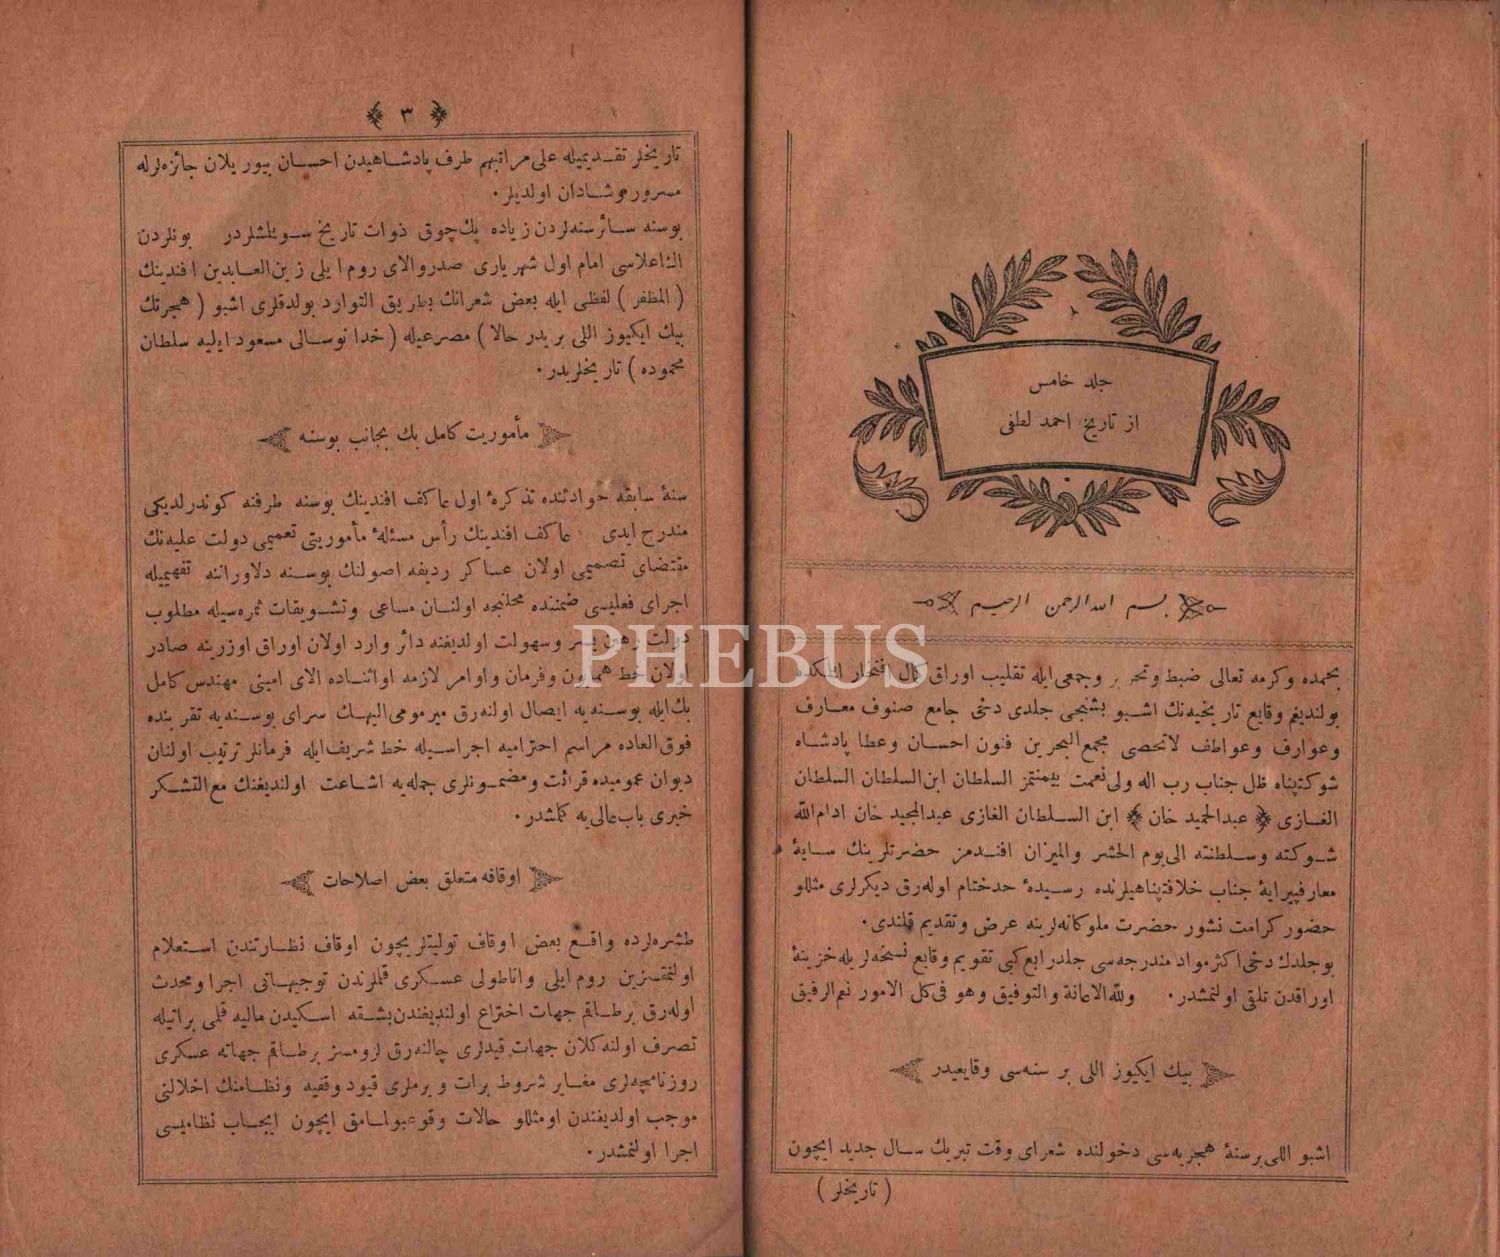 جلد خامس
از تاريخ احمد لطفى
بسم الله الرحمن الرحيم
بحمده وكرمه تعالى ضبط وتحرير وجمعى ايله تقليب اوراق كمال افتخار ايتمكده
بولنديغم وقايع تاريخيه‌نك اشبو بشنجى جلدى دخى جامع صنوف معارف
وعوارف وعواطف لاتحصى مجمع البحرين فنون احسان وعطا پادشاه
شوكتپناه ظل جناب رب اله ولى نعمت بيمنتمز السلطان ابن السلطان السلطان
الغازى ﴿ عبدالحميد خان ﴾ ابن السلطان الغازى عبدالمجيد خان ادام الله
شوكته وسلطنته الى يوم الحشر والميزان افندمز حضرتلرينك سايهٔ
معارفپيرايهٔ جناب خلافتپناهيلرنده رسيدهٔ حد ختام اوله‌رق ديكرلرى مثللو
حضور كرامت نشور حضرت ملوكانه‌لرينه عرض وتقديم قلندى.
بوجلدك دخى اكثر مواد مندرجه‌سى جلد رابع كبى تقويم وقايع نسخه‌لريله خزينهٔ
اوراقدن تلقى اولنمشدر. ولله الاعانة والتوفيق وهو فى كل الامور نعم الرفيق
بيك ايكيوز اللى بر سنه‌سى وقايعيدر
اشبو اللى بر سنهٔ هجريه‌سى دخولنده شعراى وقت تبريك سال جديد ايچون
( تاريخلر )
﴿ ٣ ﴾
تاريخلر تقديميله على مراتبهم طرف پادشاهيدن احسان بيوريلان جائزه‌لرله
مسرور وشادان اولديلر.
بوسنه سائر سنه‌لردن زياده پك چوق ذوات تاريخ سويلشلردر بونلردن
اك اعلاسى امام اول شهريارى صدر والاى روم ايلى زين العابدين افندينك
( المظفر ) لفظى ايله بعض شعرانك بطريق التوارد بولدقلرى اشبو ( هجرتك
بيك ايكيوز اللى بريدر حالا ) مصرعيله ( خدا نوسالى مسعود ايليه سلطان
محموده ) تاريخلريدر.
مأموريت كامل بك بجانب بوسنه
سنهٔ سابقه حوادثنده تذكرهٔ اول عاكف افندينك بوسنه طرفنه كوندرلديكى
مندرج ايدى عاكف افندينك رأس مسئلهٔ مأموريتى تعميمى دولت عليه‌نك
مقتضاى تصميمى اولان عساكر رديفه اصولنك بوسنه دلاورانه تفهيميله
اجراى فعليسى ضمننده محلنجه اولنان مساعى وتشويقات ثمره‌سيله مطلوب
دولت رهين يسر وسهولت اولديغنه دائر وارد اولان اوراق اوزرينه صادر
اولان خط همايون وفرمان واوامر لازمه اواثناده الاى امينى مهندس كامل
بك ايله بوسنه‌يه ايصال اولنه‌رق ميرمومى اليهك سراى بوسنه‌يه تقربنده
فوق العاده مراسم احتراميه اجراسيله خط شريف ايله فرمانلر ترتيب اولنان
ديوان عموميده قرائت ومضمونلرى جمله‌يه اشاعت اولنديغنك مع التشكر
خبرى باب عالى‌يه كلمشدر.
اوقافه متعلق بعض اصلاحات
طشره‌لرده واقع بعض اوقاف توليتلريچون اوقاف نظارتندن استعلام
اولنمقسزين روم ايلى واناطولى عسكرى قلملرندن توجيهاتى اجرا ومحدث
اوله‌رق برطاقم جهات اختراع اولنديغندن بشقه اسكيدن ماليه قلمى براتيله
تصرف اولنه كلان جهات قيدلرى چالنه‌رق لزومسز برطاقم جهاته عسكرى
روزنامچه‌لرى مغاير شروط برات ويرملرى قيود وقفيه ونظامنك اخلالنى
موجب اولديغندن اومثللو حالات وقوعبولمامق ايچون ايجاب نظاميسى
اجرا اولنمشدر.
PHEBUS